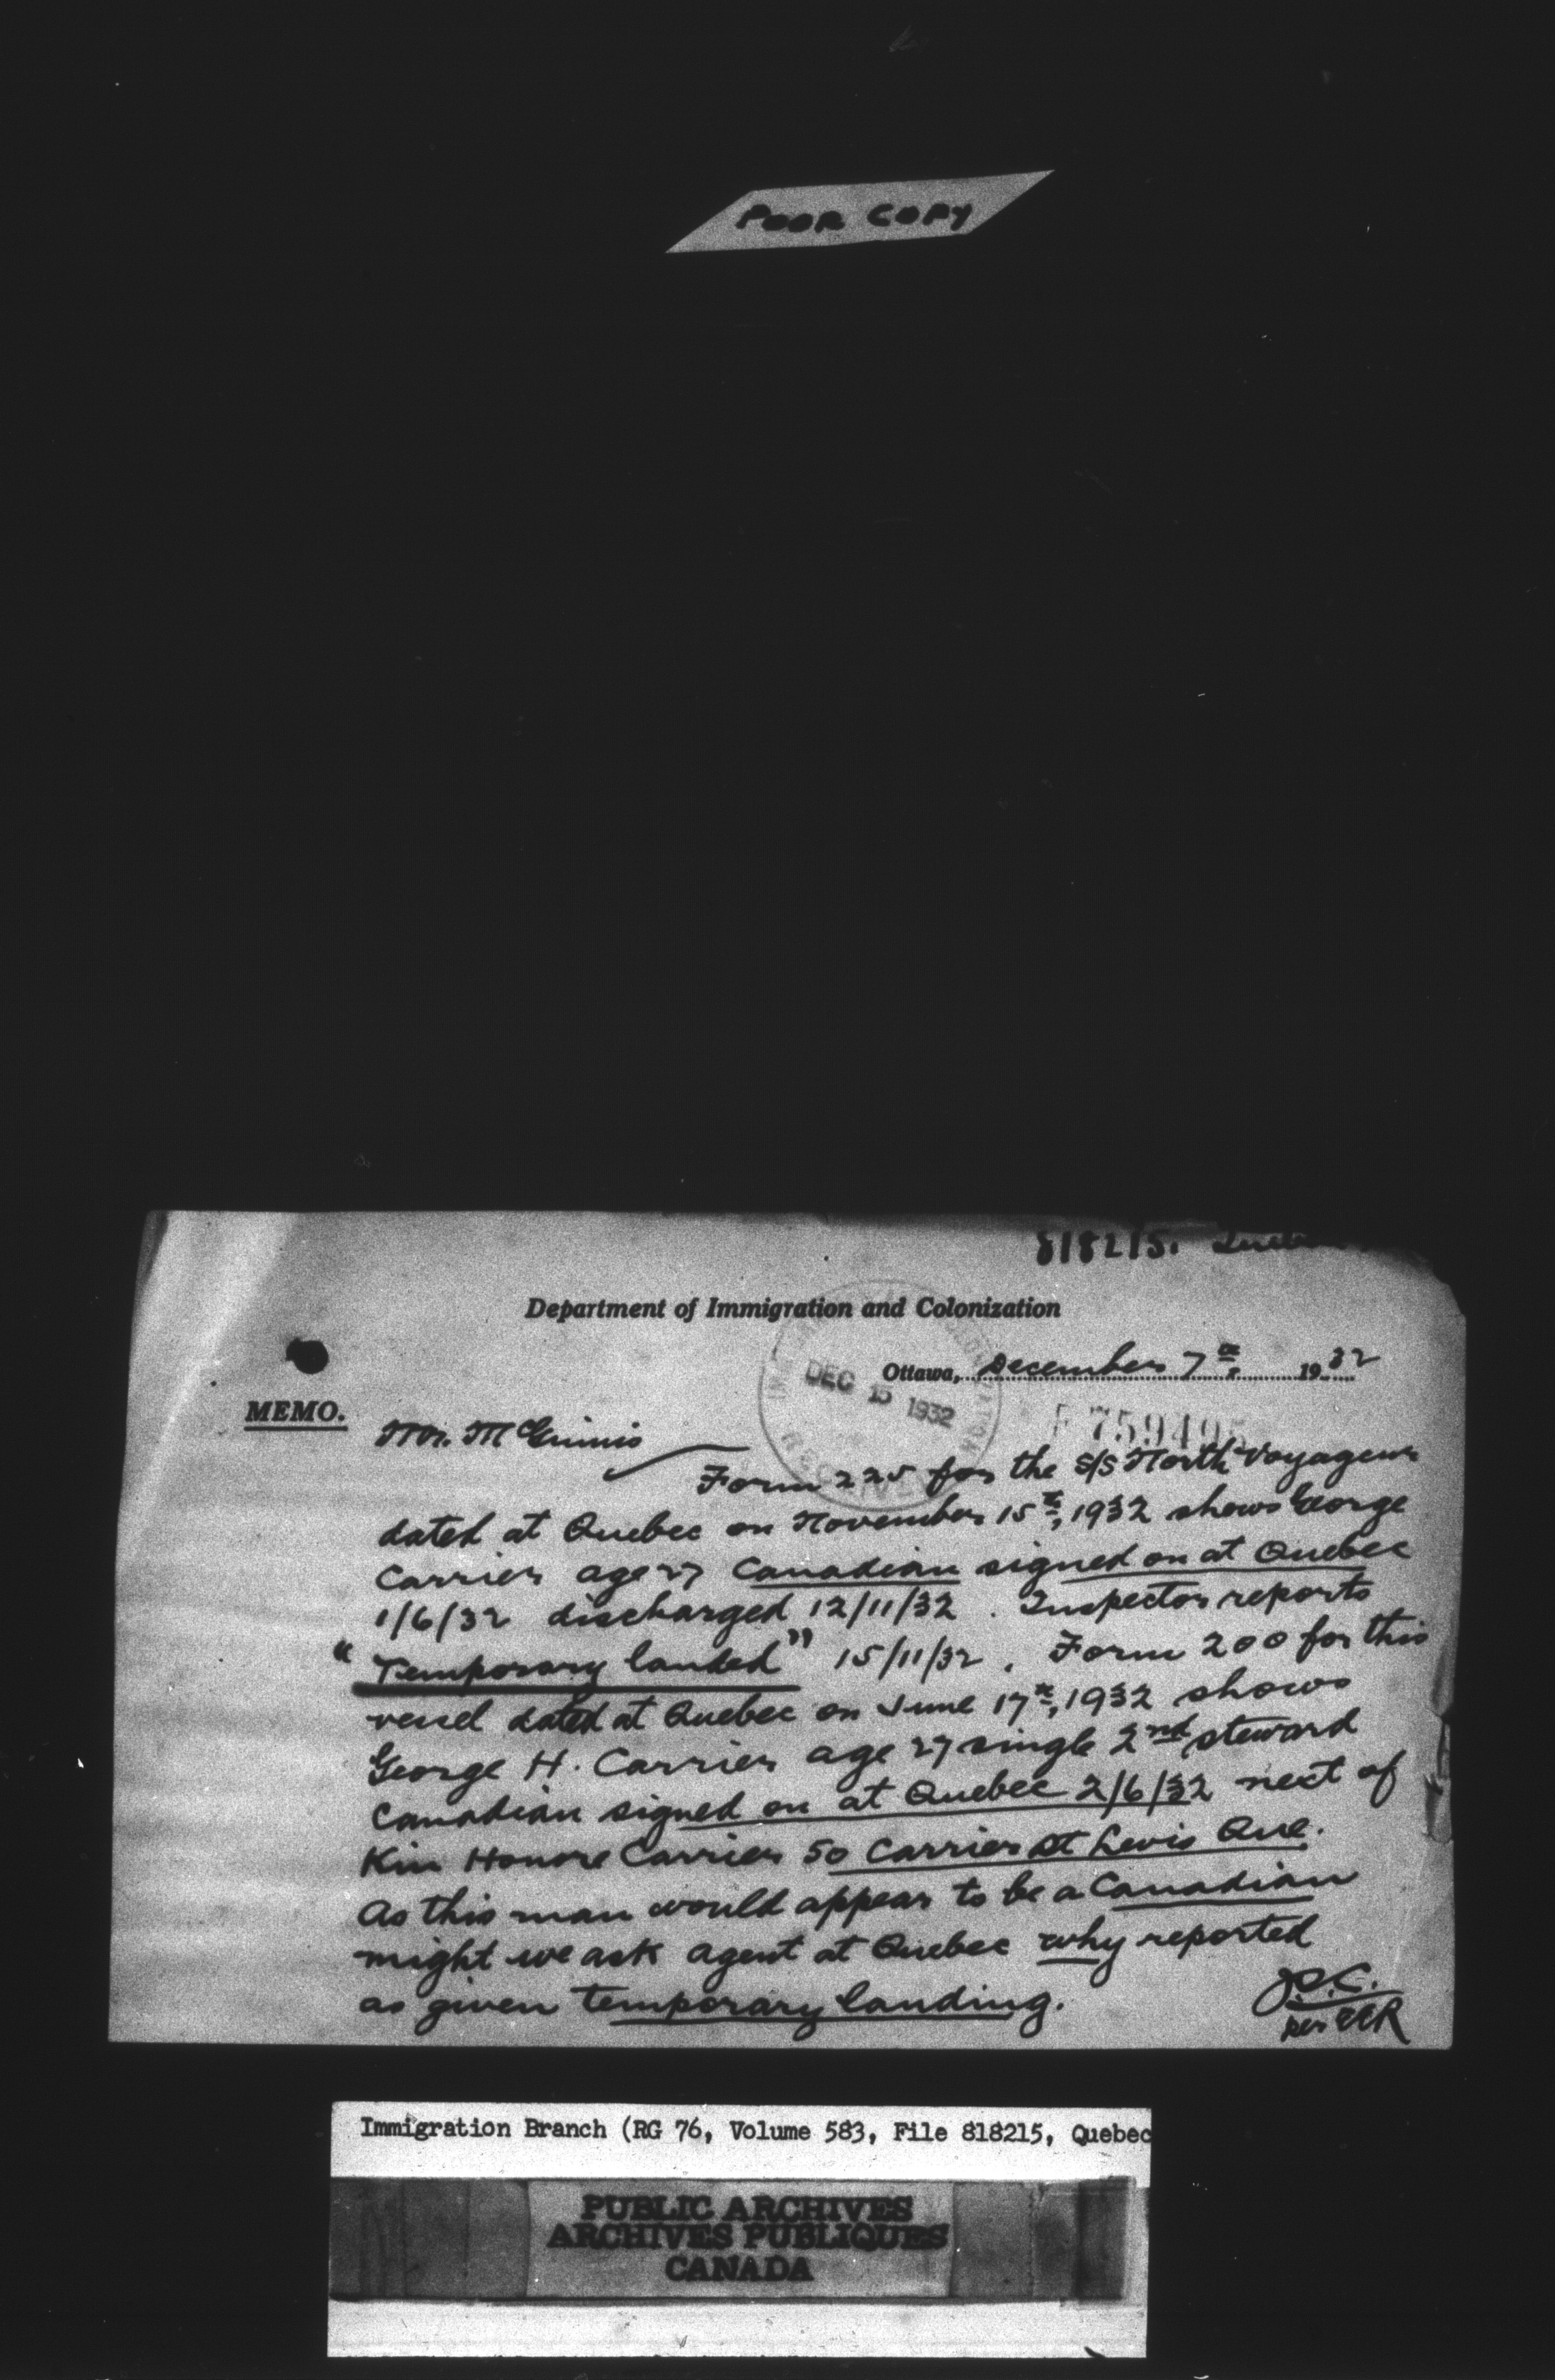 POOR COPY
818215.
Department of Immigration and Colonization
Ottawa, December 7th, 1932
DEC 15 1932
MEMO.
Mr. McGinnis
Form 225 for the S/S North Voyageur
dated at Quebec on November 15th, 1932 shows George
Carrier age 27 Canadian signed on at Quebec
1/6/32 discharged 12/11/32. Inspector reports
"Temporary landed" 15/11/32. Form 200 for this
vessel dated at Quebec on June 17th, 1932 shows
George H. Carrier age 27 single 2nd steward
Canadian signed on at Quebec 2/6/32 next of
Kin Honore Carrier 50 Carrier St Levis Que.
As this man would appear to be a Canadian
might we ask agent at Quebec why reported
as given temporary landing.
Immigration Branch (RG 76, Volume 583, File 818215, Quebec
PUBLIC ARCHIVES
ARCHIVES PUBLIQUES
CANADA